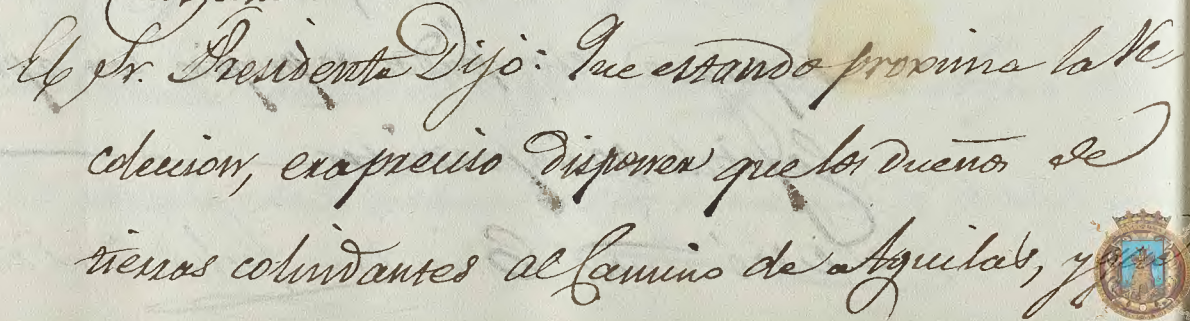 El Sr. Presidente Dijo: Que estando proxima la Re
coleccion, era preciso disponer que los Dueños de
tierras colindantes al Camino de Aguilas, y